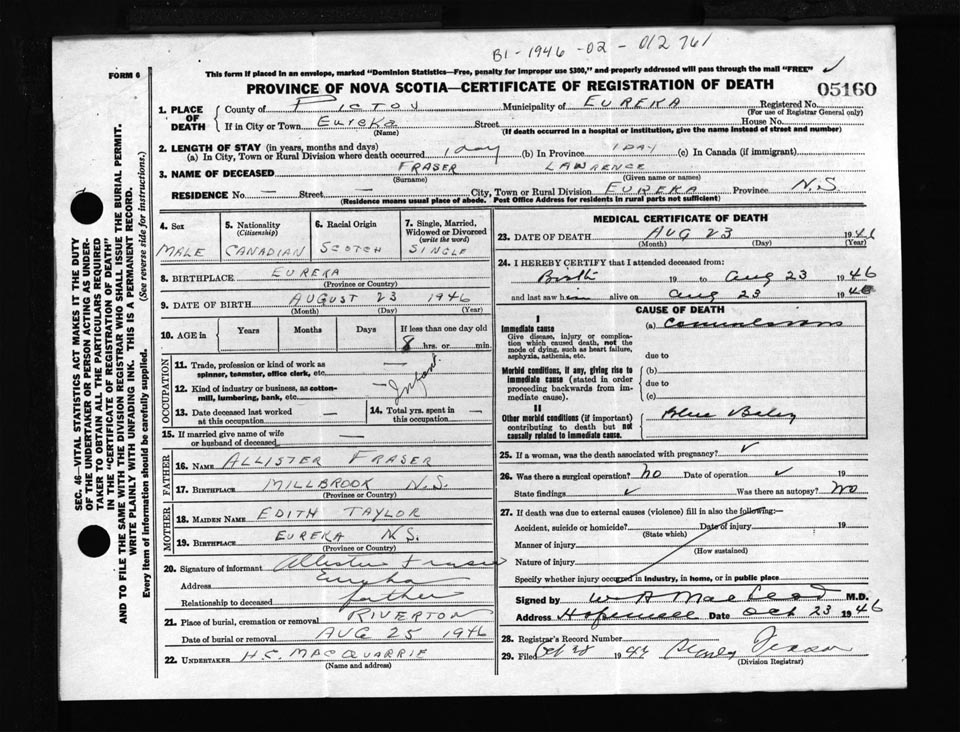 B1-1946-02-012761
FORM 6
This form if placed in an envelope, marked "Dominion Statistics—Free, penalty for improper use $300," and properly addressed will pass through the mail "FREE" ✓
PROVINCE OF NOVA SCOTIA—CERTIFICATE OF REGISTRATION OF DEATH 05160
1. PLACE OF DEATH County of PICTOU Municipality of EUREKA Registered No.
(For use of Registrar General only)
If in City or Town EUREKA Street House No.
(Name) (If death occurred in a hospital or institution, give the name instead of street and number)
2. LENGTH OF STAY (in years, months and days)
(a) In City, Town or Rural Division where death occurred 1 day (b) In Province 1 DAY (c) In Canada (if immigrant)
3. NAME OF DECEASED FRASER LAWRENCE
(Surname) (Given name or names)
RESIDENCE No. — Street — City, Town or Rural Division EUREKA Province N.S
(Residence means usual place of abode. Post Office Address for residents in rural parts not sufficient)
SEC. 46—VITAL STATISTICS ACT MAKES IT THE DUTY
OF THE UNDERTAKER OR PERSON ACTING AS UNDER-
TAKER TO OBTAIN ALL THE PARTICULARS REQUIRED
IN THE "CERTIFICATE OF REGISTRATION OF DEATH"
AND TO FILE THE SAME WITH THE DIVISION REGISTRAR WHO SHALL ISSUE THE BURIAL PERMIT.
WRITE PLAINLY WITH UNFADING INK. THIS IS A PERMANENT RECORD.
Every item of information should be carefully supplied. (See reverse side for instructions.)
4. Sex MALE
5. Nationality (Citizenship) CANADIAN
6. Racial Origin SCOTCH
7. Single, Married, Widowed or Divorced (write the word) SINGLE
8. BIRTHPLACE EUREKA
(Province or Country)
9. DATE OF BIRTH AUGUST 23 1946
(Month) (Day) (Year)
10. AGE in Years Months Days If less than one day old
8 hrs. or min.
OCCUPATION
11. Trade, profession or kind of work as spinner, teamster, office clerk, etc. —
12. Kind of industry or business, as cotton-mill, lumbering, bank, etc. — Infant
13. Date deceased last worked at this occupation —
14. Total yrs. spent in this occupation —
15. If married give name of wife or husband of deceased —
FATHER
16. NAME ALLISTER FRASER
17. BIRTHPLACE MILLBROOK N.S.
(Province or Country)
MOTHER
18. MAIDEN NAME EDITH TAYLOR
19. BIRTHPLACE EUREKA N.S.
(Province or Country)
20. Signature of informant Allister Fraser
Address Eureka
Relationship to deceased father
21. Place of burial, cremation or removal RIVERTON
Date of burial or removal AUG 25 1946
22. UNDERTAKER H.S. MACQUARRIE
(Name and address)
MEDICAL CERTIFICATE OF DEATH
23. DATE OF DEATH AUG 23 1946
(Month) (Day) (Year)
24. I HEREBY CERTIFY that I attended deceased from:
Birth 19 to Aug 23 1946
and last saw him alive on Aug 23 1946
CAUSE OF DEATH
I
Immediate cause (a) Convulsions
Give disease, injury or complication which caused death, not the mode of dying, such as heart failure, asphyxia, asthenia, etc. due to
Morbid conditions, if any, giving rise to immediate cause (stated in order proceeding backwards from immediate cause). (b)
due to
(c)
II
Other morbid conditions (if important) contributing to death but not causally related to immediate cause. Blue Baby
25. If a woman, was the death associated with pregnancy? ✓
26. Was there a surgical operation? No Date of operation ✓ 19
State findings ✓ Was there an autopsy? No
27. If death was due to external causes (violence) fill in also the following:—
Accident, suicide or homicide? Date of injury 19
(State which)
Manner of injury
(How sustained)
Nature of injury
Specify whether injury occurred in industry, in home, or in public place
Signed by W A MacLeod M.D.
Address Hopewell Date Oct 23 1946
28. Registrar's Record Number
29. Filed Oct 28 19
(Division Registrar)